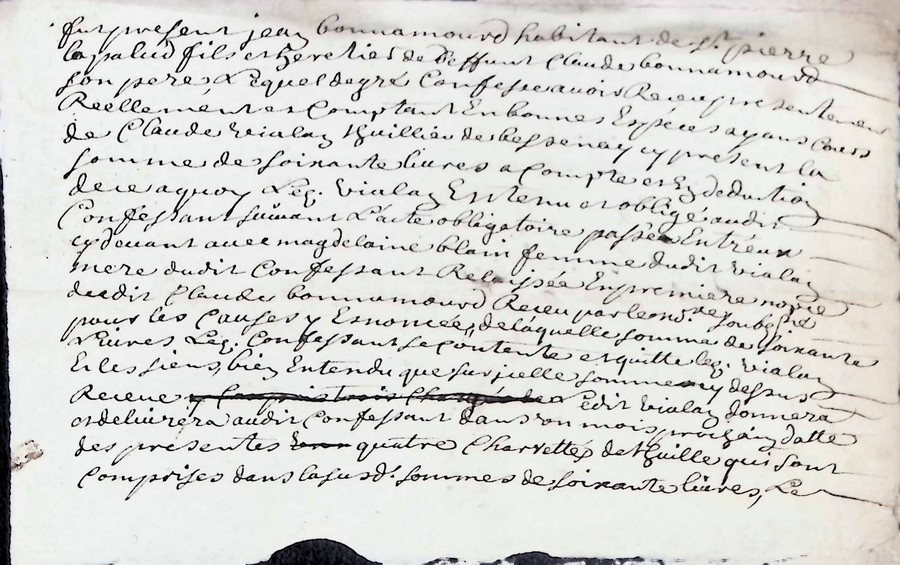 fut present jean bonnamourd habitant de St. pierre
lapalud fils et heretier de deffunt Claude bonnamourd
son pere, Lequel de gré Confesse avoir Receu presentement
Reellement et Comptant En bonnes Especes ayans Cours
de Claude vialay thuillier de bessenay cy present la
somme de soixante livres a Compte et En deduction
de ce a quoy Led. vialay Est tenu et obligé audit
Confessant suivant L'acte obligatoire passé Entreux
cy devant avec magdelaine blain femme dudit vialay
mere dudit Confessant Relaissée En premiere nopce
dudit Claude bonnamourd Receu par le no.re soubsné
pour les Causes y Esnoncées, de laquelle somme de soixante
Livres Led. Confessant se Contente et quitte led. vialay
Et les siens, bien Entendu que sur jcelle somme cy dessus
Receue y Compris trois Charges de Ledit vialay donnera
et delivrera audit Confessant dans un mois prochain datte
des presentes quatre Charrettés de thuille qui sont
Comprises dans la susd. somme de soixante livres, Le